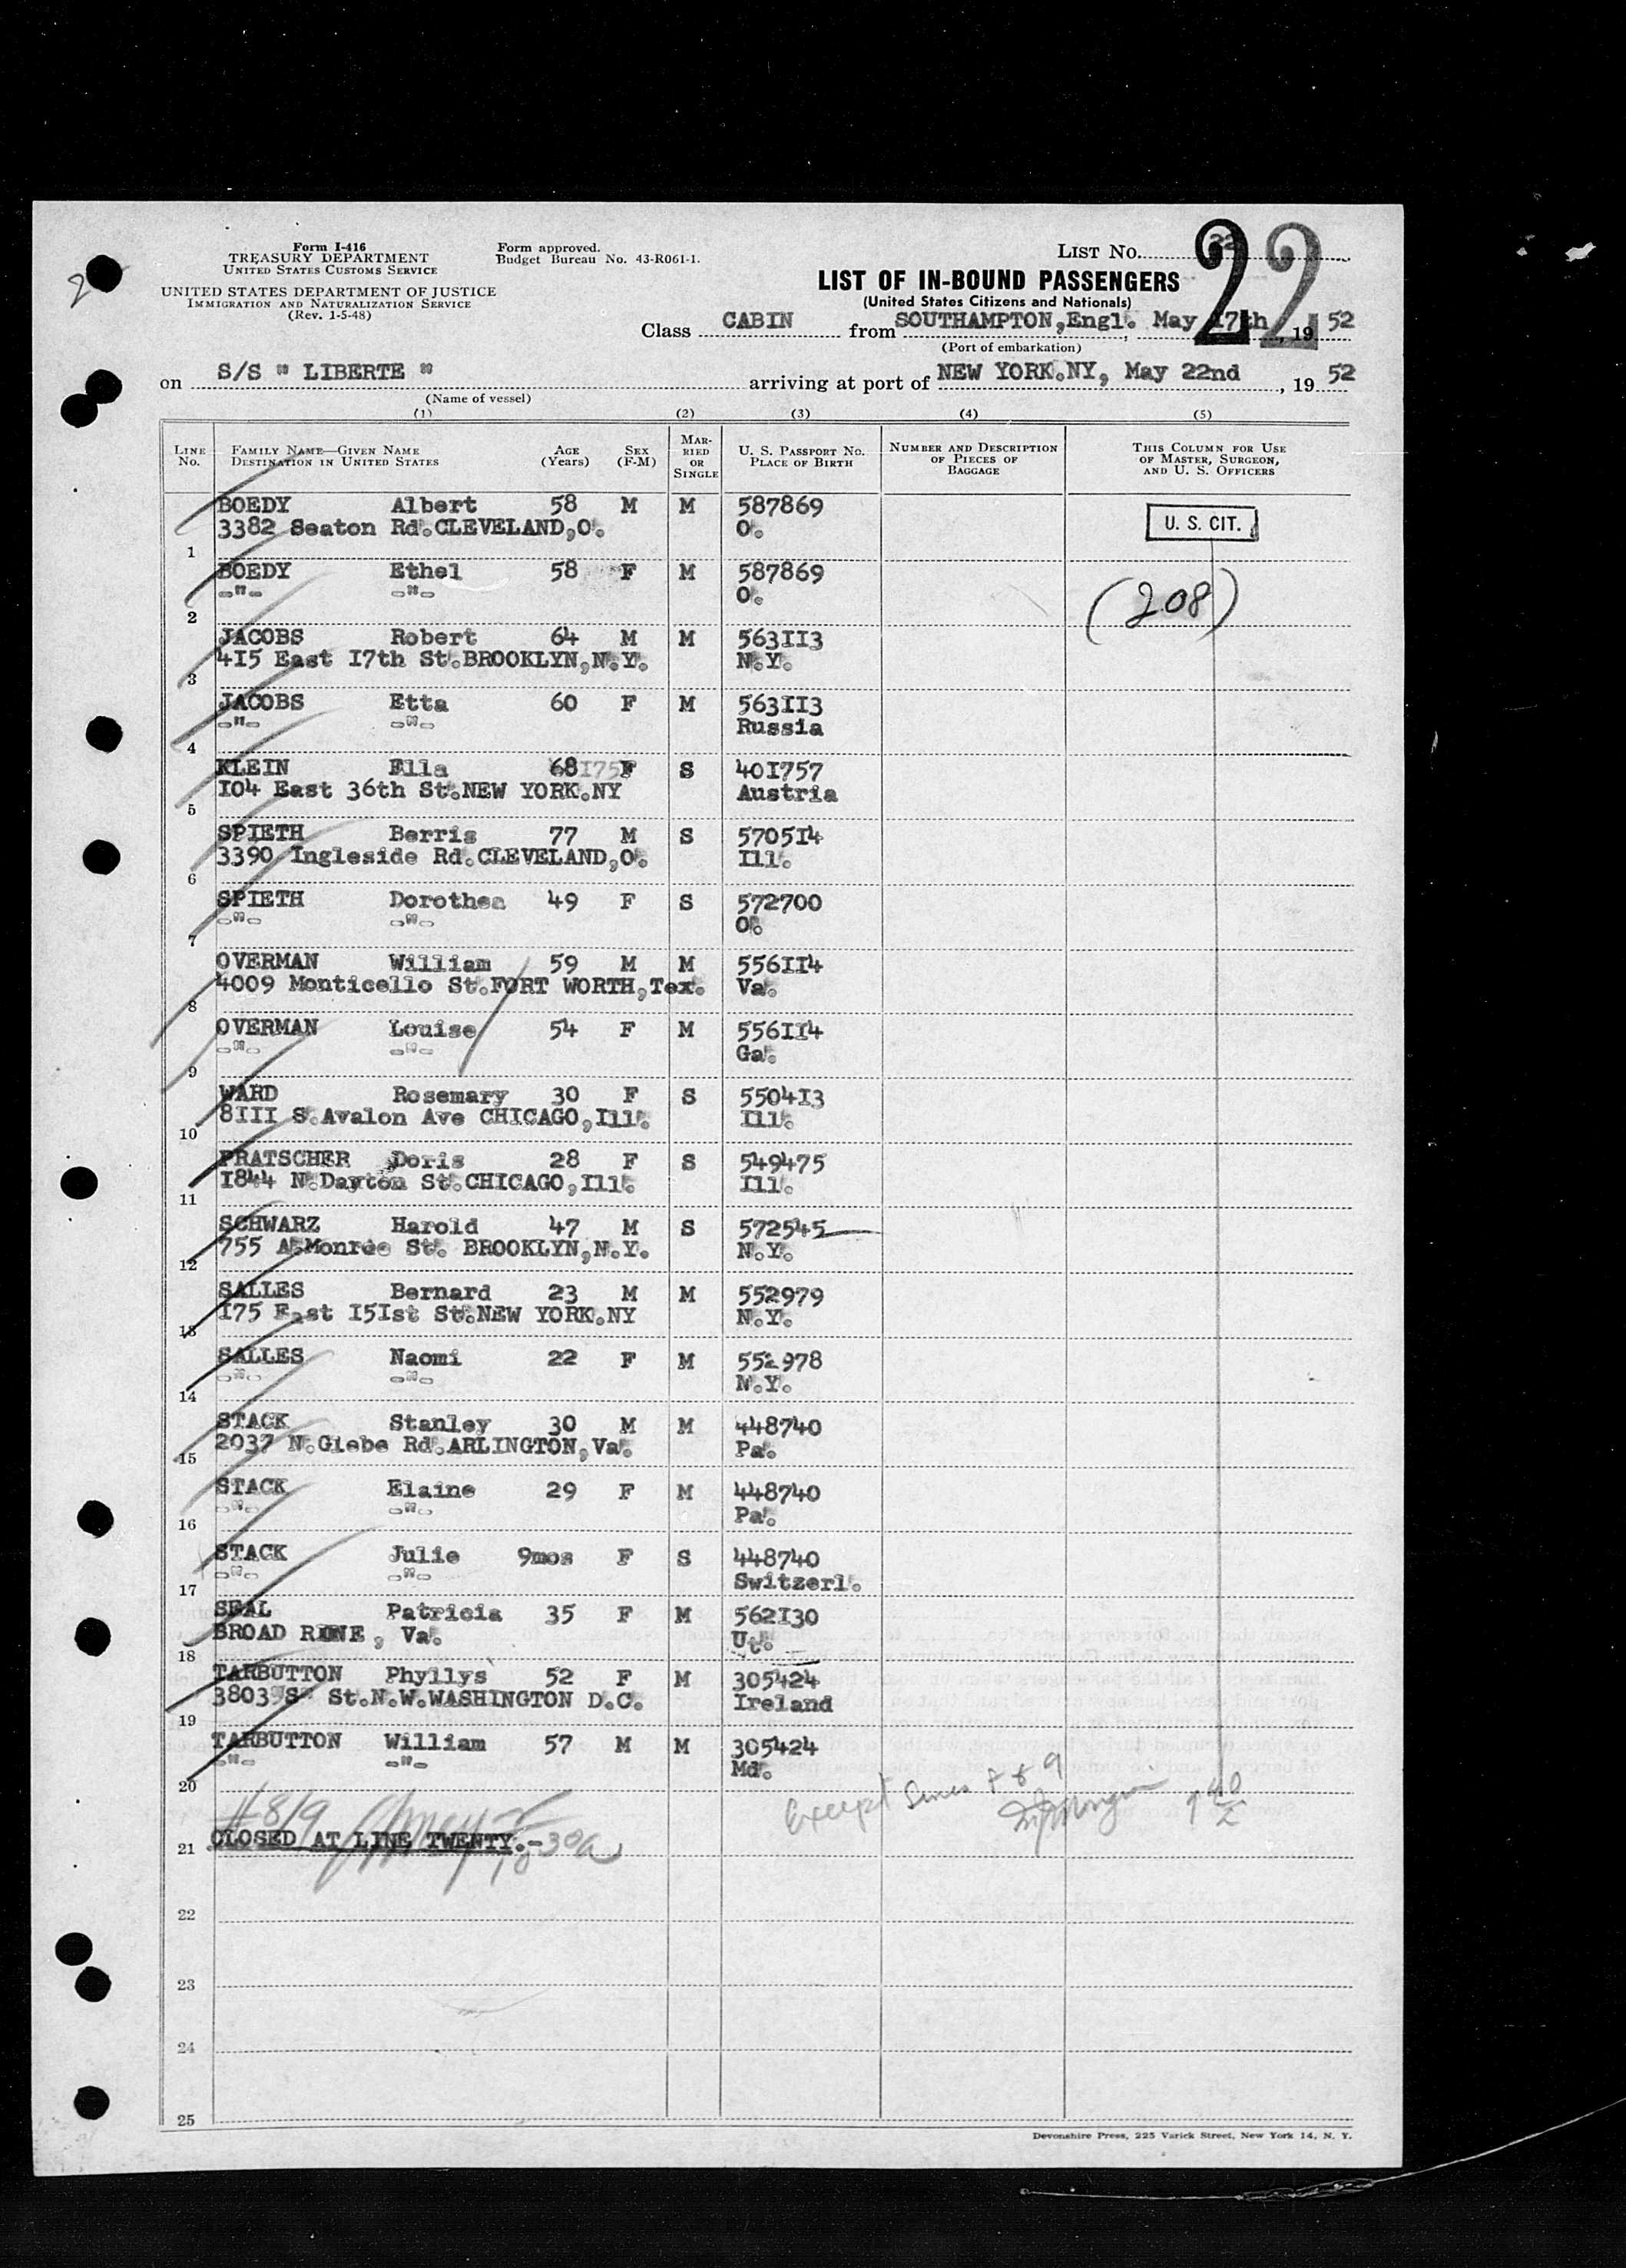 Form I-416
TREASURY DEPARTMENT
UNITED STATES CUSTOMS SERVICE
UNITED STATES DEPARTMENT OF JUSTICE
IMMIGRATION AND NATURALIZATION SERVICE
(Rev. 1-5-48)
Form approved.
Budget Bureau No. 43-R061-1.
LIST NO. 22
LIST OF IN-BOUND PASSENGERS
(United States Citizens and Nationals)
Class CABIN from SOUTHAMPTON,Engl. May 17th, 19 52
(Port of embarkation)
on S/S " LIBERTE " arriving at port of NEW YORK.NY, May 22nd, 19 52
(Name of vessel)
(1) (2) (3) (4) (5)
LINE NO. FAMILY NAME—GIVEN NAME DESTINATION IN UNITED STATES AGE (Years) SEX (F-M) MARRIED OR SINGLE U. S. PASSPORT NO. PLACE OF BIRTH NUMBER AND DESCRIPTION OF PIECES OF BAGGAGE THIS COLUMN FOR USE OF MASTER, SURGEON, AND U. S. OFFICERS
BOEDY Albert 58 M M 587869
3382 Seaton Rd.CLEVELAND,O. O. U. S. CIT.
1
BOEDY Ethel 58 F M 587869
-"- -"- O. (208)
2
JACOBS Robert 64 M M 563II3
4I5 East I7th St.BROOKLYN,N.Y. N.Y.
3
JACOBS Etta 60 F M 563II3
-"- -"- Russia
4
KLEIN Ella 68 F S 40I757
I04 East 36th St.NEW YORK.NY Austria
5
SPIETH Berris 77 M S 5705I4
3390 Ingleside Rd.CLEVELAND,O. Ill.
6
SPIETH Dorothea 49 F S 572700
-"- -"- O.
7
OVERMAN William 59 M M 556II4
4009 Monticello St.FORT WORTH,Tex. Va.
8
OVERMAN Louise 54 F M 556II4
-"- -"- Ga.
9
WARD Rosemary 30 F S 5504I3
8III S.Avalon Ave CHICAGO,Ill. Ill.
10
PRATSCHER Doris 28 F S 549475
I844 N.Dayton St.CHICAGO,Ill. Ill.
11
SCHWARZ Harold 47 M S 572545
755 A.Monroe St. BROOKLYN,N.Y. N.Y.
12
SALLES Bernard 23 M M 552979
I75 East I5Ist St.NEW YORK.NY N.Y.
13
SALLES Naomi 22 F M 552978
-"- -"- N.Y.
14
STACK Stanley 30 M M 448740
2037 N.Glebe Rd.ARLINGTON,Va. Pa.
15
STACK Elaine 29 F M 448740
-"- -"- Pa.
16
STACK Julie 9mos F S 448740
-"- -"- Switzerl.
17
SEAL Patricia 35 F M 562I30
BROAD RUNE, Va. Ut.
18
TARBUTTON Phyllys 52 F M 305424
3803"S" St.N.W.WASHINGTON D.C. Ireland
19
TARBUTTON William 57 M M 305424
-"- -"- Md.
20
Except Lines 8 & 9
#8/9
21 CLOSED AT LINE TWENTY.-
22
23
24
25
Devonshire Press, 225 Varick Street, New York 14, N. Y.